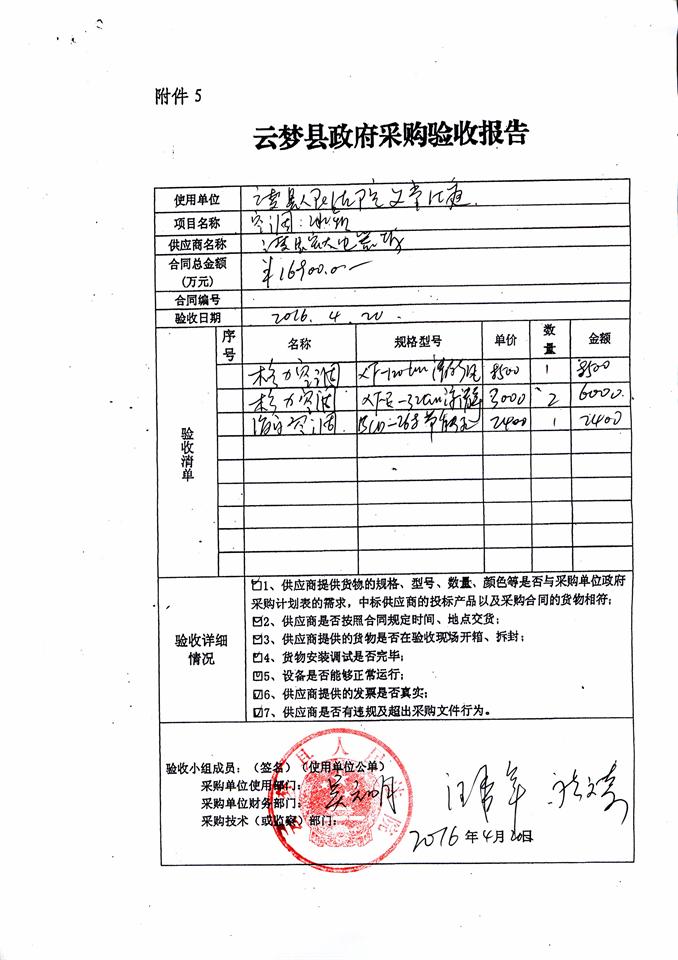 附件 5
云梦县政府采购验收报告
使用单位 云梦县人民法院
项目名称 空调、冰箱
供应商名称
合同总金额
(万元) ¥16900.00
合同编号
验收日期 2016.4.20.
验收清单
序号 名称 规格型号 单价 数量 金额
格力空调 8500 1 8500
格力空调 3000 2 6000.
2400 1 2400
验收详细
情况
☑1、供应商提供货物的规格、型号、数量、颜色等是否与采购单位政府
采购计划表的需求，中标供应商的投标产品以及采购合同的货物相符；
☑2、供应商是否按照合同规定时间、地点交货；
☑3、供应商提供的货物是否在验收现场开箱、拆封；
☑4、货物安装调试是否完毕；
☑5、设备是否能够正常运行；
☑6、供应商提供的发票是否真实；
☑7、供应商是否有违规及超出采购文件行为。
验收小组成员：（签名）（使用单位公单）
采购单位使用部门：
采购单位财务部门：
采购技术（或监察）部门：
2016 年 4 月 20日